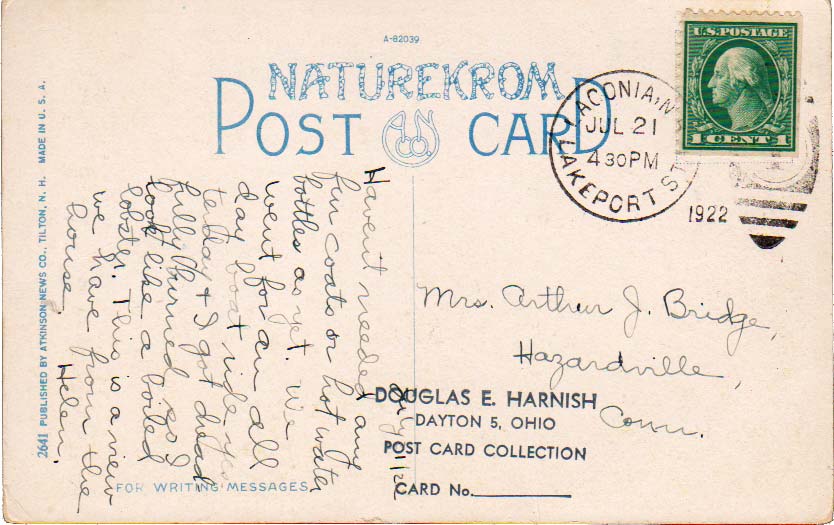 A-82039
NATUREKROM
POST CARD
ANCo.
U.S. POSTAGE
1 CENT 1
LACONIA, N.
JUL 21
4 30 PM
LAKEPORT STA
1922
2641 PUBLISHED BY ATKINSON NEWS CO., TILTON, N. H. MADE IN U. S. A.
July
Havent needed any
fur coats or hot water
bottles as yet. We
went for an all
day boat ride yes
terday & I got dread
fully burned so I
look like a boiled
lobster. This is a view
we have from the
house.
Helen.
Mrs. Arthur J. Bridge,
Hazardville,
Conn.
DOUGLAS E. HARNISH
DAYTON 5, OHIO
POST CARD COLLECTION
CARD No.
FOR WRITING MESSAGES